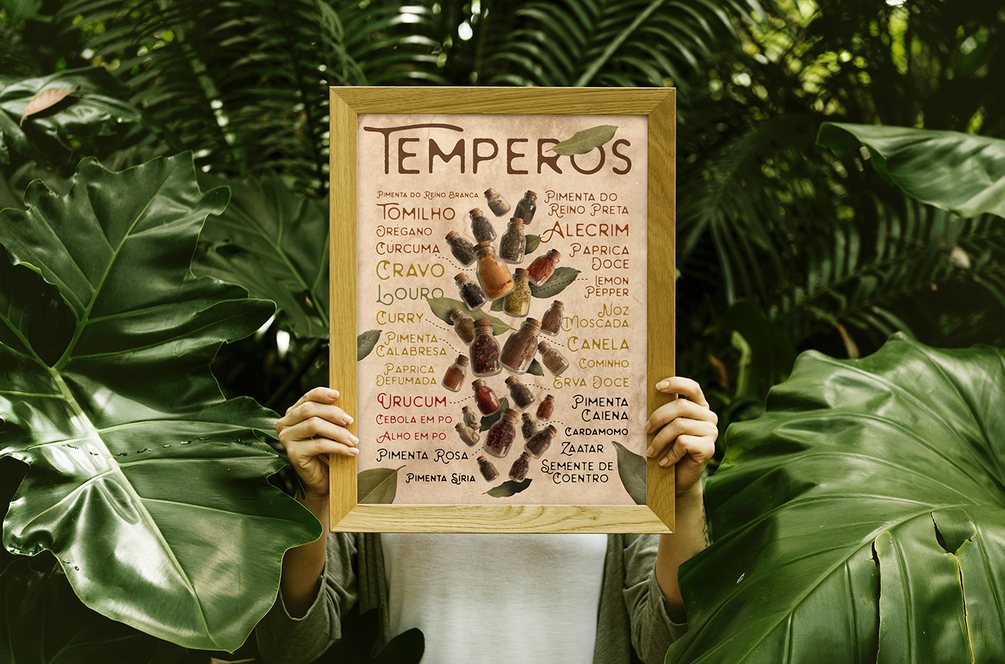 TEMPEROS
PIMENTA DO REINO BRANCA
TOMILHO
OREGANO
CURCUMA
CRAVO
LOURO
CURRY
PIMENTA
CALABRESA
PAPRICA
DEFUMADA
URUCUM
CEBOLA EM PO
ALHO EM PO
PIMENTA ROSA
PIMENTA SÍRIA
PIMENTA DO
REINO PRETA
ALECRIM
PAPRICA
DOCE
LEMON
PEPPER
NOZ
MOSCADA
CANELA
COMINHO
ERVA DOCE
PIMENTA
CAIENA
CARDAMOMO
ZAATAR
SEMENTE DE
COENTRO